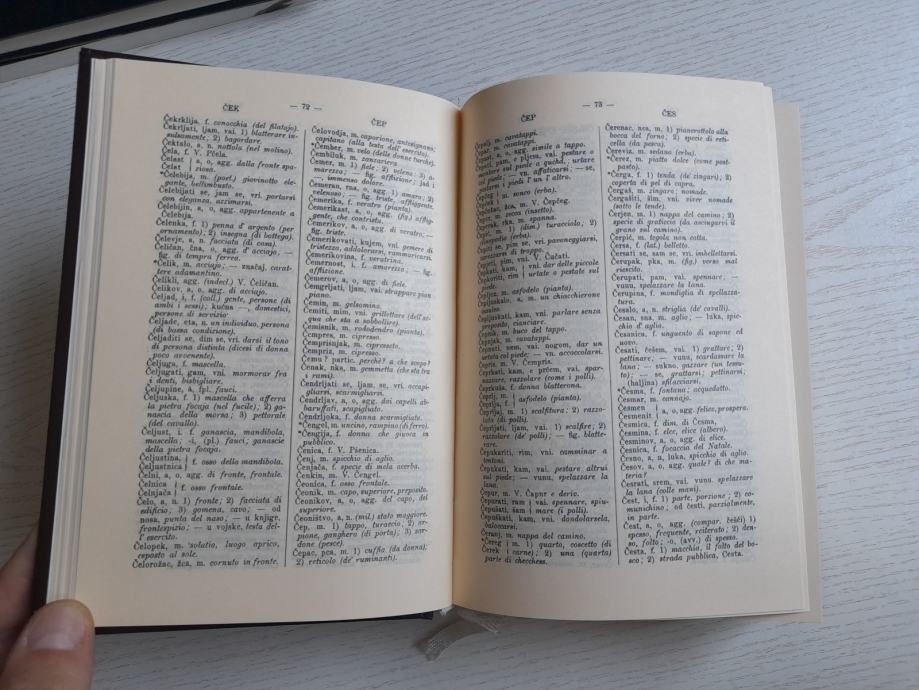 ČEK — 72 — ČEP
Čekrklija, f. conocchia (del filatajo).
Čekrljati, ljam, vai. 1) blatterare in-
sulsamente, 2) bagordare.
Čektalo, a, n. nottola (nel molino).
Čela, f. V. Pčela.
Čelast } a, o, agg. dalla fronte spa-
Čelat } ziosa.
*Čelebija, m. (poet.) giovinotto ele-
gante, bellimbusto.
Čelebijati se, jam se, vri. portarsi
con eleganza, azzimarsi.
Čelebijin, a, o, agg. appartenente a
Čelebija.
Čelenka, f. 1) penna d' argento (per
ornamento); 2) insegna (di bottega).
Čelevje, a, n. facciata (di casa).
Čeličan, čna, o, agg. d' acciajo, —
fig. di tempra ferrea.
*Čelik, m. acciajo; — značaj, carat-
tere adamantino.
Čelikli, agg. (indecl.) V. Čeličan.
Čelikov, a, o, agg. di acciajo.
Čeljad, i, f. (coll.) gente, persone (di
ambi i sessi); kućna —, domestici,
persone di servizio
Čeljade, eta, n. un individuo, persona
(di bassa condizione).
Čeljaditi se, dim se, vri. darsi il tono
di persona distinta (dicesi di donna
poco avvenente).
Čeljugа, f. mascella.
Čeljugati, gam, vni. mormorar fra
i denti, bisbigliare.
Čeljupine, á, fpl. fauci.
Čeljuska, f. 1) mascella che afferra
la pietra focaja (nel fucile); 2) ga-
nascia della morsa; 3) pettorale
(del cavallo).
Čeljust, i, f. ganascia, mandibola,
mascella; -i, (pl.) fauci; ganascie
della pietra focaja.
Čeljustnina } f. osso della mandibola.
Čeljustnica }
Čelni, a, o, agg. di fronte, frontale.
Čelnica } f. osso frontale.
Čelnjača }
Čelo, a, n. 1) fronte; 2) facciata di
edificio, 3) gomena, cavo; — od
nosa, punta del naso; — u knjige,
frontespizio; — u vojske, testa del-
l' esercito.
Čelopek, m. solatio, luogo aprico,
esposto al sole.
Čelorožac, žca, m. cornuto in fronte.
Čelovodja, m. caporione, antesignano;
capitano (alla testa dell' esercito).
*Čember, m. velo (delle donne turche).
Čembiluk, m. zanzariera.
Čemer, m. 1) fiele; 2) veleno; 3) a-
marezza; — fig. afflizione; jad i
—, immenso dolore.
Čemeran, rna, o, agg. 1) amaro; 2)
velenoso; — fig. triste, affliggente.
Čemerika, f. veratro (pianta).
Čemerikast, a, o, agg. (fig.) afflig-
gente, che contrista.
Čemerikov, a, o, agg. di veratro; —
fig. triste.
Čemerikovati, kujem, vni. gemere di
tristezza, addolorarsi, rammaricarsi.
Čemerikovina, f. veratro.
Čemernost, i, f. amarezza; — fig.
afflizione.
Čemerov, a, o, agg. di fiele.
Čemgrijati, ljam, vai. strappare pian
piano.
Čemin, m. gelsomino.
Čemiti, mim, vni. grillettare (dell' ac-
qua che sta a sobbollire).
Čemisnik, m. rododendro (pianta).
Čempres, m. cipresso.
Čemprišnjak, m. cipresseto.
Čempriz, m. cipresso.
Čemu? partic. perchè? a che scopo?
Čenak, nka, m. gemmetta (che sta tra
i rami).
Čendrljati se, ljam se, vri. accapi-
gliarsi, scarmigliarsi.
Čendrljav, a, o, agg. dai capelli ab-
baruffati, scapigliato.
Čendrljoka, f. donna scarmigliata.
*Čengel, m. uncino, rampino (di ferro).
*Čengija, f. donna che giuoca in
pubblico.
Čenica, f. V. Pšenica.
Čenj, m. spicchio di aglio.
Čenjača, f. specie di mela acerba.
Čenkin, m. V. Čengel.
Čeonica, f. osso frontale.
Čeonik, m. capo, superiore, preposito.
Čeonikov, a, o, agg. del capo, del
superiore.
Čeoništvo, a, n. (mil.) stato maggiore.
Čep, m. 1) tappo, turaccio; 2) ar-
pione, ganghero (di porta); 3) sar-
done (pesce).
Čepac, pca, m. 1) cuffia (da donna);
2) reticolo (de' ruminanti).
ČEP — 73 — ČES
m. cavatappi.
m. cavatappi.
a, o, agg. simile a tappo.
pam, e pljem, vai. pestare o
montare sul piede a qualche, urtare
sul piede. — vn. affaticarsi; — se,
urtarsi i piedi l' un l' altro.
m. sonco (erba).
tca, m. V. Čepčeg.
m. zocca (insetto).
rka, m. spanna.
m. 1) (dim.) turacciolo; 2)
cinquepedio (erba).
se, pim se, vri. pavoneggiarsi,
rizzarsi di troppo.
Čepiti, pim, vni. V. Čučati.
kam, vni. dar delle piccole
rim } urtate o pestate sul
piede.
m. asfodelo (pianta).
Čepljokalo, a, m. un chiacchierone
vanesio.
Čepljuskati, kam, vni. parlare senza
proposto, cianciare.
m. buco del tappo.
Čepnjak, m. cavatappi.
sem, vai. nogom, dar un
urtata col piede; — vn. accoccolarsi.
m. V. Čempris.
Čeprkati, kam, e prčem, vai. spar-
nazzare, razzolare (come i polli).
Čeprkuša, f. donna blatterona.
f. asfodelo (pianta).
m. 1) scalfitura; 2) razzo-
latа (di polli).
Čeprljati, ljam, vai. 1) scalfire; 2)
razzolare (de' polli); — fig. blatte-
rare.
Čepukariti, rim, vni. camminar a
tentoni.
Čepukati, kam, vai. pestare altrui
sul piede; — vunu, spelazzare la
lana.
Čepur, m. V. Čapur e deriv.
Čepurati, ram } vai. spennare, spiu-
Čepušati, šam } mare (i polli).
Čepuškati, kam, vni. dondolarsela,
baloccarsi.
Čeranj, m. nappa del camino.
*Čereg } m. 1) quarto, coscetto (di
Čerek } carne); 2) una (quarta)
parte di checchess.
Čerenac, nca, m. 1) pianerottolo alla
bocca del forno, 2) specie di reti-
cella (da pesca).
Čerevis, m. sedano (erba).
*Čerez, m. piatto dolce (come post-
pasto).
*Čerga, f. 1) tenda (de' zingari); 2)
coperta di pel di capra.
Čergaš, m. zingaro; nomade.
Čergašiti, šim, vni. viver nomade
(sotto le tende).
Čerjen, m. 1) nappa del camino; 2)
specie di graticcio (da asciugarvi il
grano sul camino).
Čerpić, m. tegola non cotta.
Čersa, f. (lat.) belletto.
Čersati se, sam se, vri. imbellettarsi.
Čerupak, pka, m. (fig.) verso mal
riescito.
Čerupati, pam, vai. spennare; —
vunu, spelazzare la lana.
Čerupina, f. mondiglia di spelazza-
tura.
Česalo, a, n. striglia (de' cavalli).
Česan, sna, m. aglio; — luka, spic-
chio d' aglio.
Česanica, f. unguento di sapone ed
uovo.
Česati, češem, vai. 1) grattare; 2)
pettinare; — vunu, scardassare la
lana; — sukno, gazzare (un tessu-
to); — se, grattarsi; pettinarsi;
(haljina) sfilacciarsi.
*Česma, f. fontana; acquedotto.
Česmar, m. cannajo.
Česmen } a, o, agg. felice, prospero.
Česmenit }
Česmica, f. dim. di Česma,
Česmina, f. elce, elice (albero).
Česminov, a, o, agg. di elice.
Česnica, f. focaccia del Natale.
Česno, a, n. luka, spicchio di aglio.
Česov, a, o, agg. quale? di che ma-
teria?
Česrati, srem, vai. vunu, spelazzare
la lana (colle mani).
Čest, i, f. 1) parte, porzione; 2) co-
munichino; od česti, parzialmente,
in parte.
Čest, a, o, agg. (compar. češći) 1)
spesso, frequente, reiterato; 2) den-
so, folto; -o, (avv.) di spesso.
Česta, f. 1) macchia, il folto del bo-
sco; 2) strada pubblica, Cesta.